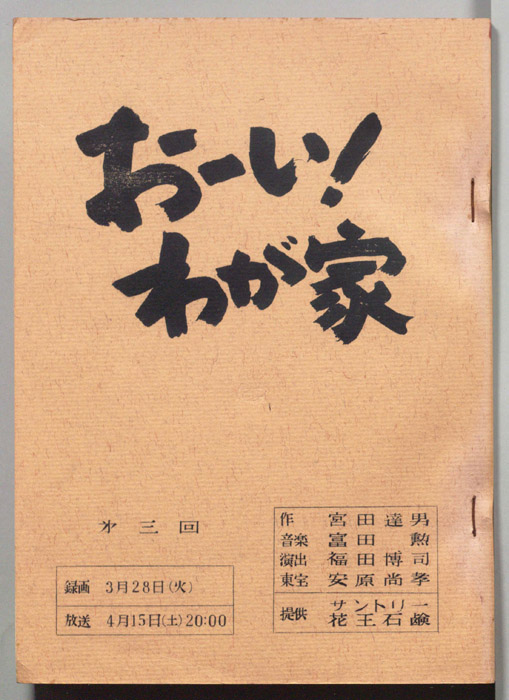 おーい!
わが家
才三回
録画 3月28日(火)
放送 4月15日(土)20:00
作 宮田達男
音楽 富田勲
演出 福田博司
東宝 安原尚孝
提供 サントリー
花王石鹸